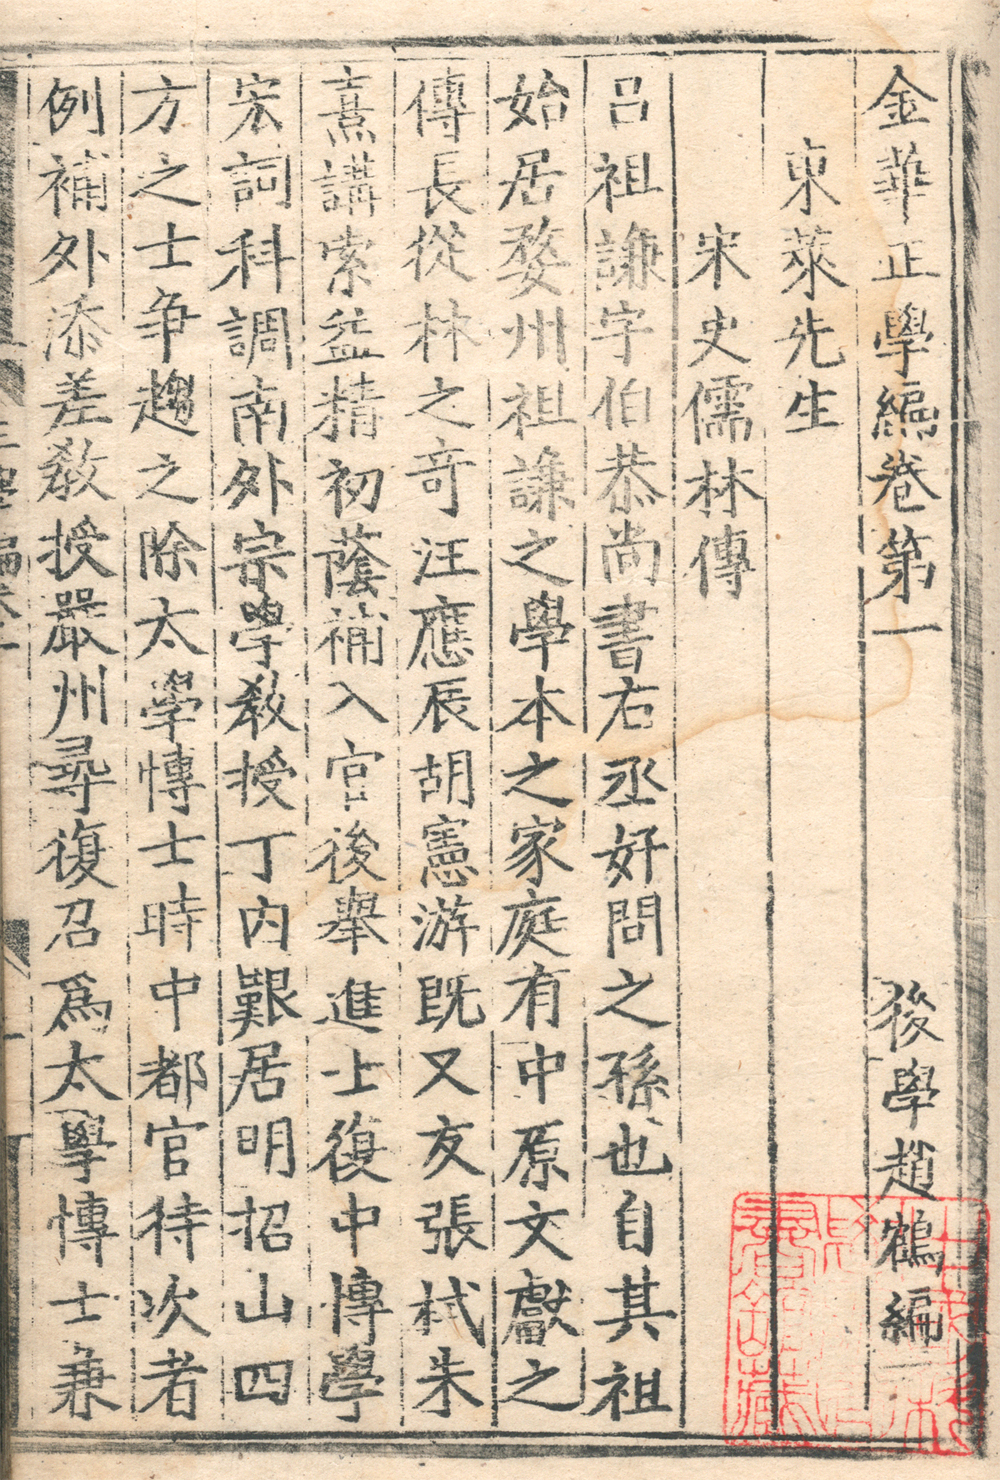 金華正學編卷第一　後學趙鶴編
東萊先生
宋史儒林傳
呂祖謙字伯恭尚書右丞好問之孫也自其祖
始居婺州祖謙之學本之家庭有中原文獻之
傳長從林之竒汪應辰胡憲游既又友張栻朱
熹講索益精初蔭補入官後舉進士復中博學
宏詞科調南外宗學教授丁內艱居明招山四
方之士争趨之除太學博士時中都官待次者
例補外添差教授嚴州尋復召爲太學博士兼